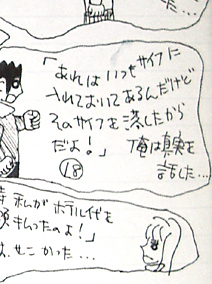 「あれはいつもサイフに
入れておいてあるんだけど
そのサイフを落したから
だよ！」 俺は真実を
話した…
18
私がホテル代を
払ったのよ！」
せこかった…